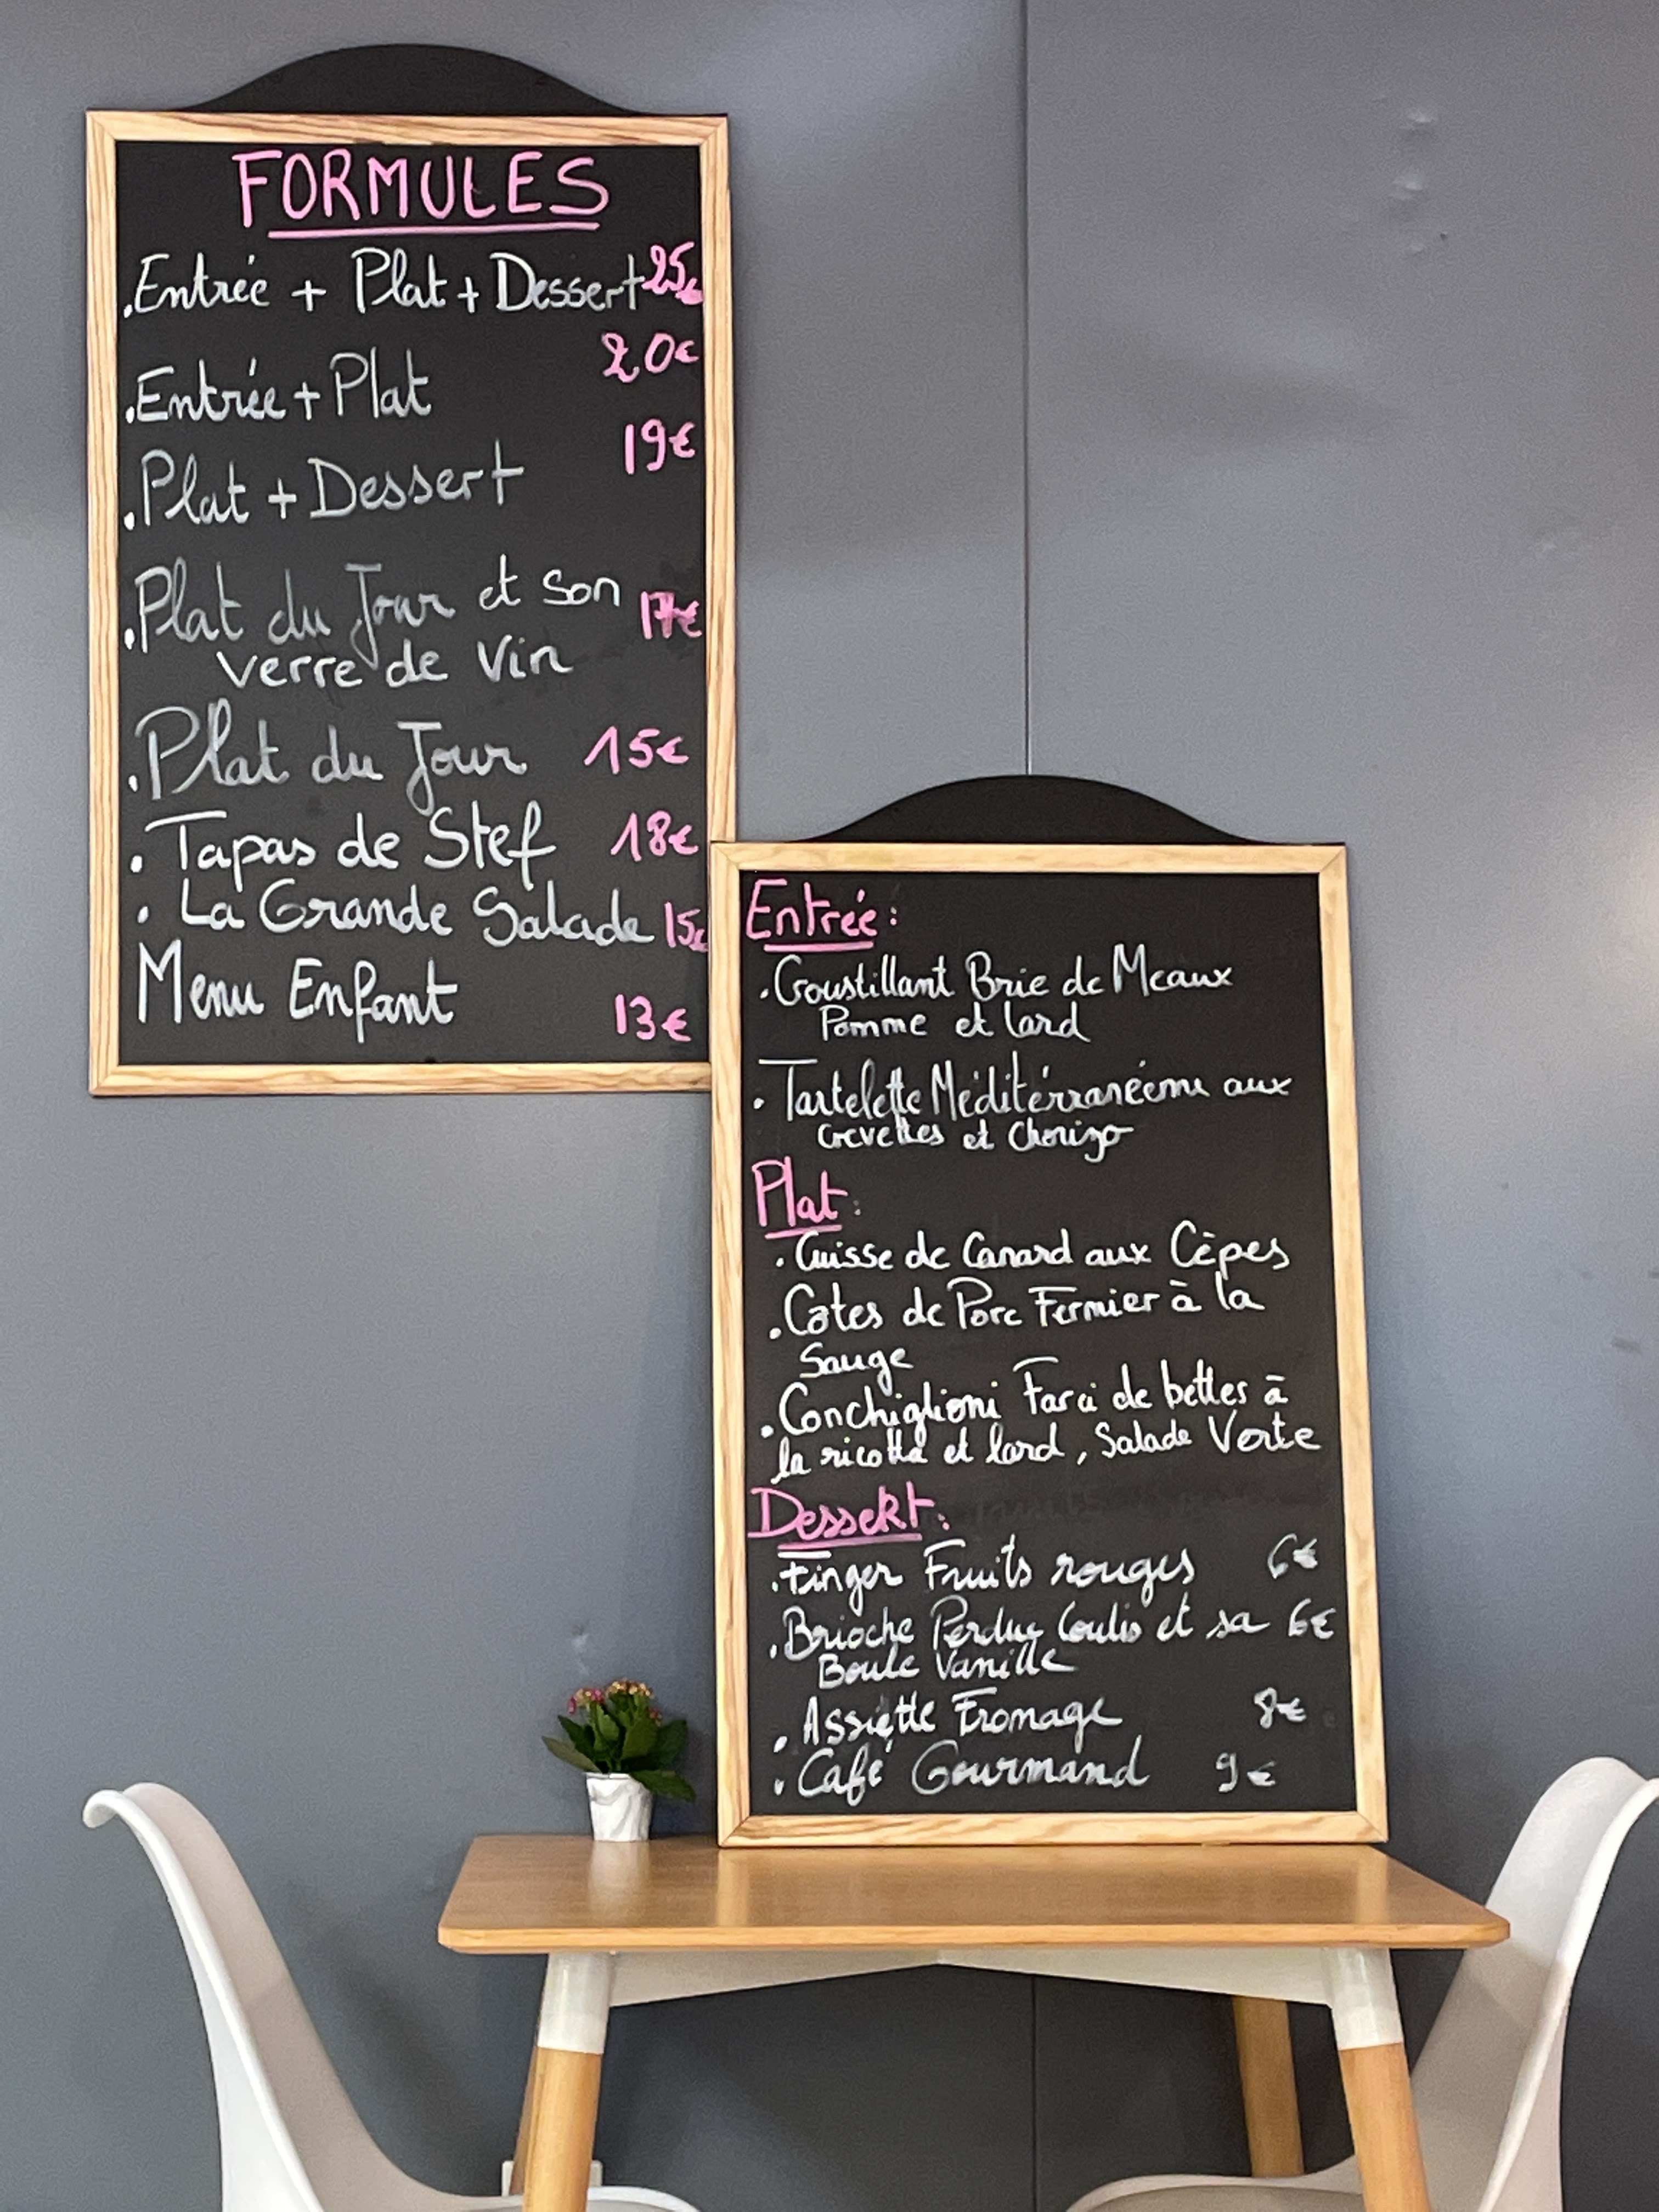 FORMULES
.Entrée + Plat + Dessert 25€
.Entrée + Plat 20€
.Plat + Dessert 19€
.Plat du Jour et son 17€
verre de Vin
.Plat du Jour 15€
. Tapas de Stef 18€
. La Grande Salade 15€
Menu Enfant 13€
Entrée :
.Croustillant Brie de Meaux
Pomme et lard
. Tartelette Méditérranéenne aux
crevettes et Chorizo
Plat :
. Cuisse de Canard aux Cèpes
. Cotes de Porc Fermier à la
Sauge
. Conchiglioni Farci de bettes à
la ricotta et lard, Salade Verte
Dessert :
. Finger Fruits rouges 6€
. Brioche Perdue Coulis et sa 6€
Boule Vanille
. Assiette Fromage 8€
. Café Gourmand 9€